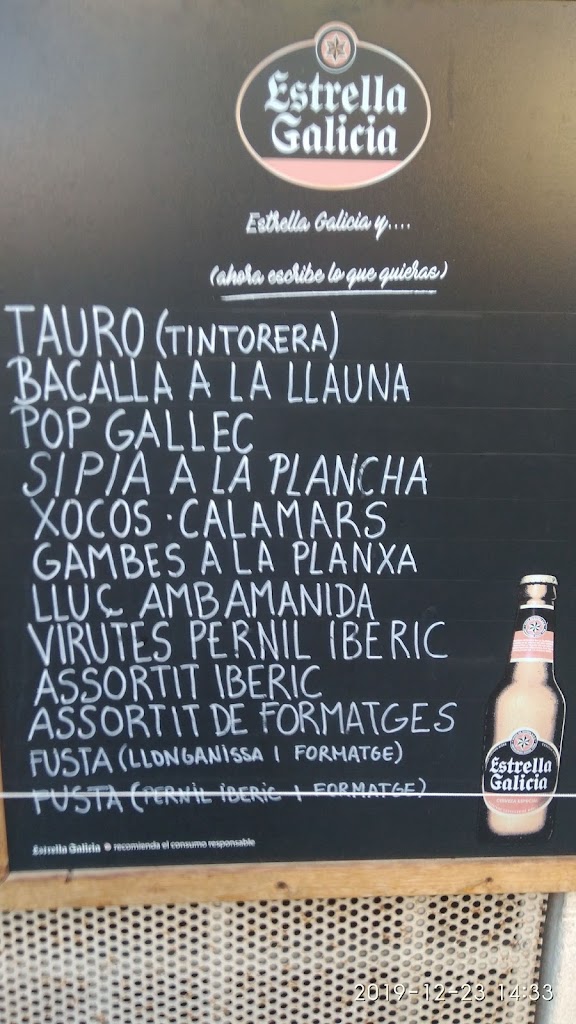 Estrella
Galicia
Estrella Galicia y....
(ahora escribe lo que quieras)
TAURO (TINTORERA)
BACALLA A LA LLAUNA
POP GALLEC
SIPIA A LA PLANCHA
XOCOS · CALAMARS
GAMBES A LA PLANXA
LLUÇ AMB AMANIDA
VIRUTES PERNIL IBERIC
ASSORTIT IBERIC
ASSORTIT DE FORMATGES
FUSTA (LLONGANISSA I FORMATGE)
FUSTA (PERNIL IBERIC I FORMATGE)
Estrella
Galicia
Estrella Galicia recomienda el consumo responsable
2019-12-23 14:33